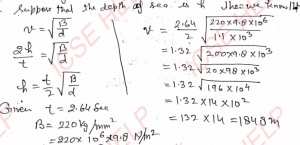 Suppose that the depth of sea is h then we know that
v = √(B/d)
2h/t = √(B/d)
h = t/2 √(B/d)
Given t = 2.64 sec
B = 220 kg/mm²
= 220 × 10⁶ × 9.8 N/m²
v = 2.64/2 √(220×9.8×10⁶/1.1×10³)
= 1.32 √(200×9.8×10³)
= 1.32 √(20×98×10³)
= 1.32 √(196×10⁴)
= 1.32 × 14 × 10²
= 132 × 14 = 1848 m